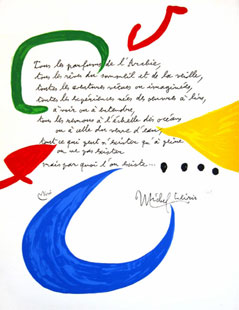 Tous les parfums de l'Arabie,
tous les rêves du sommeil et de la veille,
toutes les aventures vécues ou imaginées,
toutes les expériences nées de œuvres à lire,
à voir ou à entendre,
tous les remous à l'échelle des océans
ou à celle du verre d'eau,
tout ce qui peut n'exister qu'à peine
ou ne pas exister
mais par quoi l'on existe...
Miró
Michel Leiris